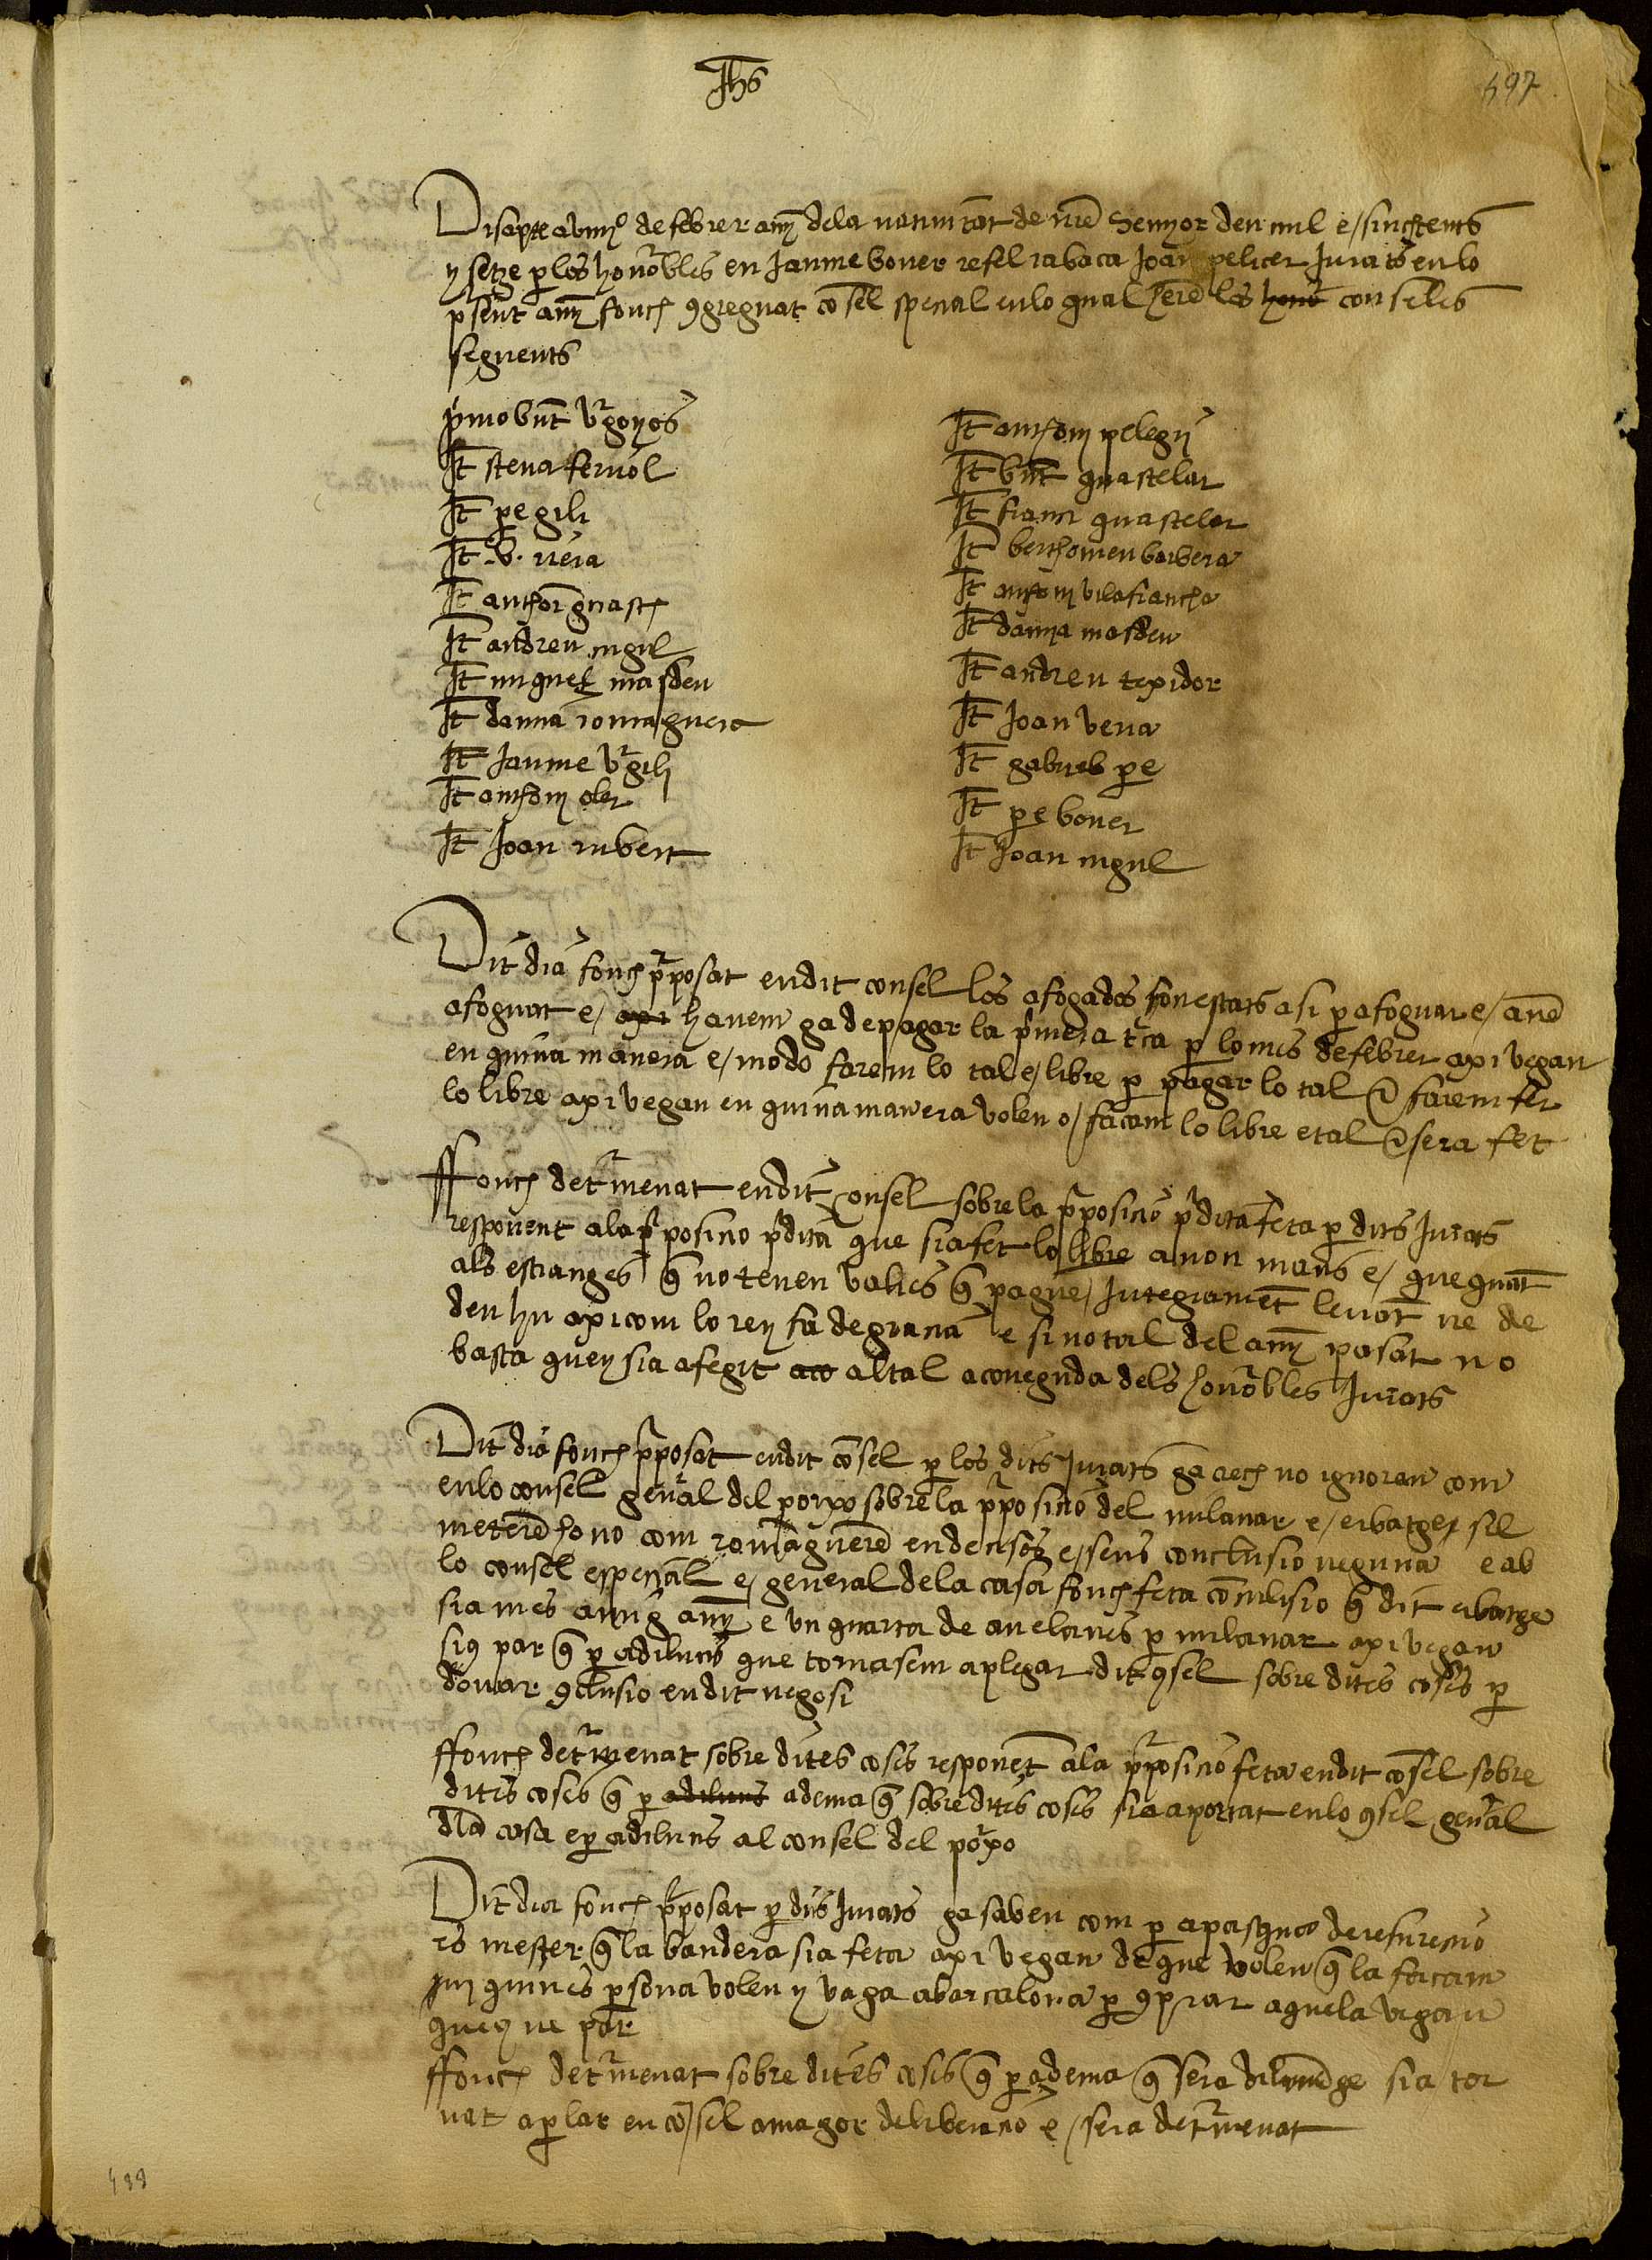 Jhs
497
Disapte a viiii de febrer any dela nativitat de nre Senyor deu mil e sinchcents
y setze p los honorables en Jaume bover rafel rabaca Joan pelicer Jurats en lo
psent any fonch congreguat consel special en lo qual heren los conseles
seguents
primo bnt vrgonos
It steva feriol
It pe gili
It b. riera
It anthoni guasch
It andreu mgul
It miquel masdeu
It damia romaguera
It Jaume vrgili
It anthoni oler
It Joan rubert
It anthoni pelegri
It bnt guastelar
It franci guastelar
It berthomeu barbera
It anthoni vilafrancha
It damia masdeu
It andreu texidor
It Joan vena
It gabriel pe
It pe boner
It Joan mgul
Dit dia fonch pposat en dit consel los afogados son estats asi p afoguar e an
afoguat e havem ga de pagar la primera tca p lo mes de febrer axi vegan
en quina manera e modo farem lo tal e libre p pagar lo tal q farem fer
lo libre axi vegan en quina manera volen o facam lo libre e tal q sera fet
ffonch detrmenat en dit consel sobre la pposicio pdita feta p dits Jurats
responent ala pposicio pdita que sia fet lo libre a non mans e que quant
als estranges q no tenen valies q pague Integrament levat ne de
deu hu axi com lo rey fa de gracia e si no tal del any pasat no
basta quey sia afegit al tal a coneguda dels honorables Jurats
Dit dia fonch pposat en dit consel p los dits Jurats ga crech no ignoran com
en lo consel general del porxo sobre la pposicio del milanar e erbatge sil
meterem ho no com romaguerem en decisos e sens conclusio neguna e ab
lo consel especial e general dela casa fonch feta conclusio q dit erbatge
sia mes any e un quarta de avelanes p milanar axi vegan
sius par q p adiluns que tornasem aplegar dit consel sobre dites coses p
donar conclusio en dit negosi
ffonch detrmenat sobre dites coses responent ala pposicio feta en dit consel sobre
dites coses q p adiluns adema q sobre dites coses sia aportat en lo consel general
dla casa e p adiluns al consel del porxo
Dit dia fonch pposat p dits Jurats ga saben com p apasqua de resurecio
es mester q la bandera sia feta axi vegan de que volen q la facam
ni quines persona volen y vaga abarcalona p comprar aquela vegan
quey ne par
ffonch detrmenat sobre dites coses q p adema q sera diumenge sia tor
nat aparlar en consel amagor deliberacio e sera detrmenat
499